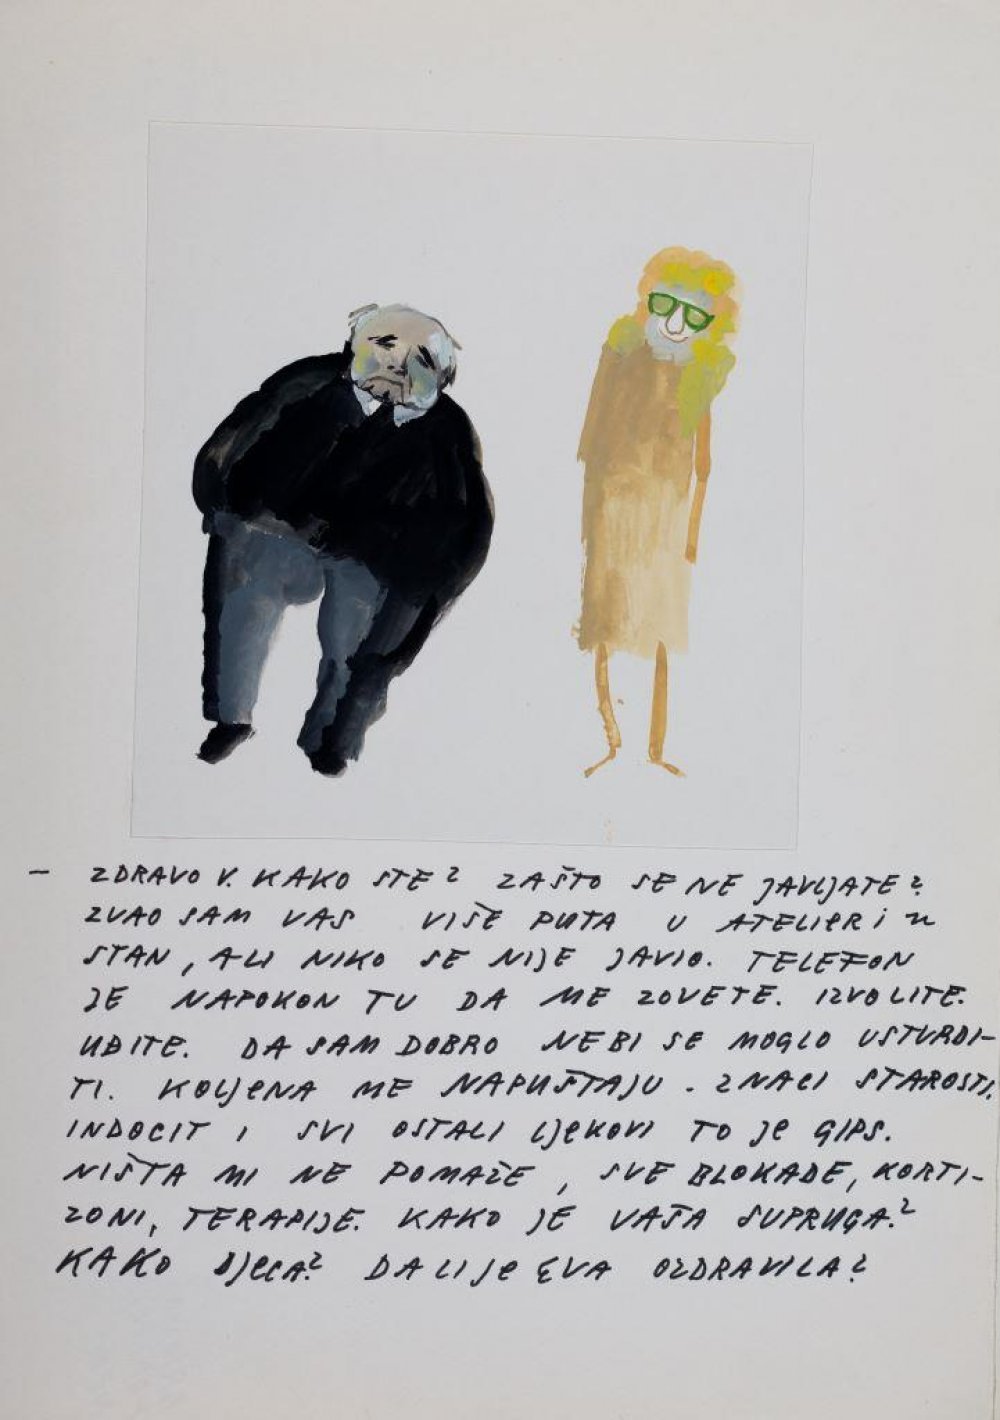 - ZDRAVO V. KAKO STE? ZAŠTO SE NE JAVLJATE?
ZVAO SAM VAS VIŠE PUTA U ATELIER i U
STAN, ALI NIKO SE NIJE JAVIO. TELEFON
JE NAPOKON TU DA ME ZOVETE. IZVOLITE.
UĐITE. DA SAM DOBRO NEBI SE MOGLO USTVRDI-
TI. KOLJENA ME NAPUŠTAJU. ZNACI STAROSTI.
INDOCIT I SVI OSTALI LJEKOVI TO JE GIPS.
NIŠTA MI NE POMAŽE, SVE BLOKADE, KORTI-
ZONI, TERAPIJE. KAKO JE VAŠA SUPRUGA?
KAKO DJECA? DA LI JE EVA OZDRAVILA?